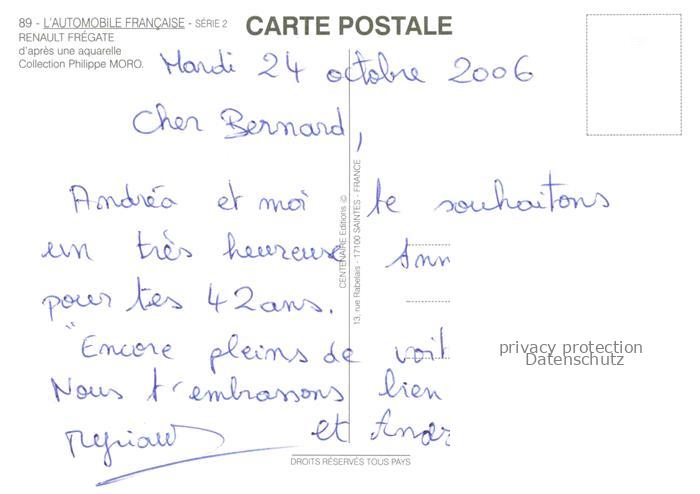 89 - L'AUTOMOBILE FRANÇAISE - SÉRIE 2
RENAULT FRÉGATE
d'après une aquarelle
Collection Philippe MORO.
CARTE POSTALE
Mardi 24 octobre 2006
Cher Bernard,
Andréa et moi te souhaitons
un très heureuse Ann
pour tes 42 ans.
"Encore pleins de voit
Nous t'embrassons bien
et Andr
CENTENAIRE Editions ©
13, rue Rabelais - 17100 SAINTES - FRANCE
privacy protection
Datenschutz
DROITS RÉSERVÉS TOUS PAYS